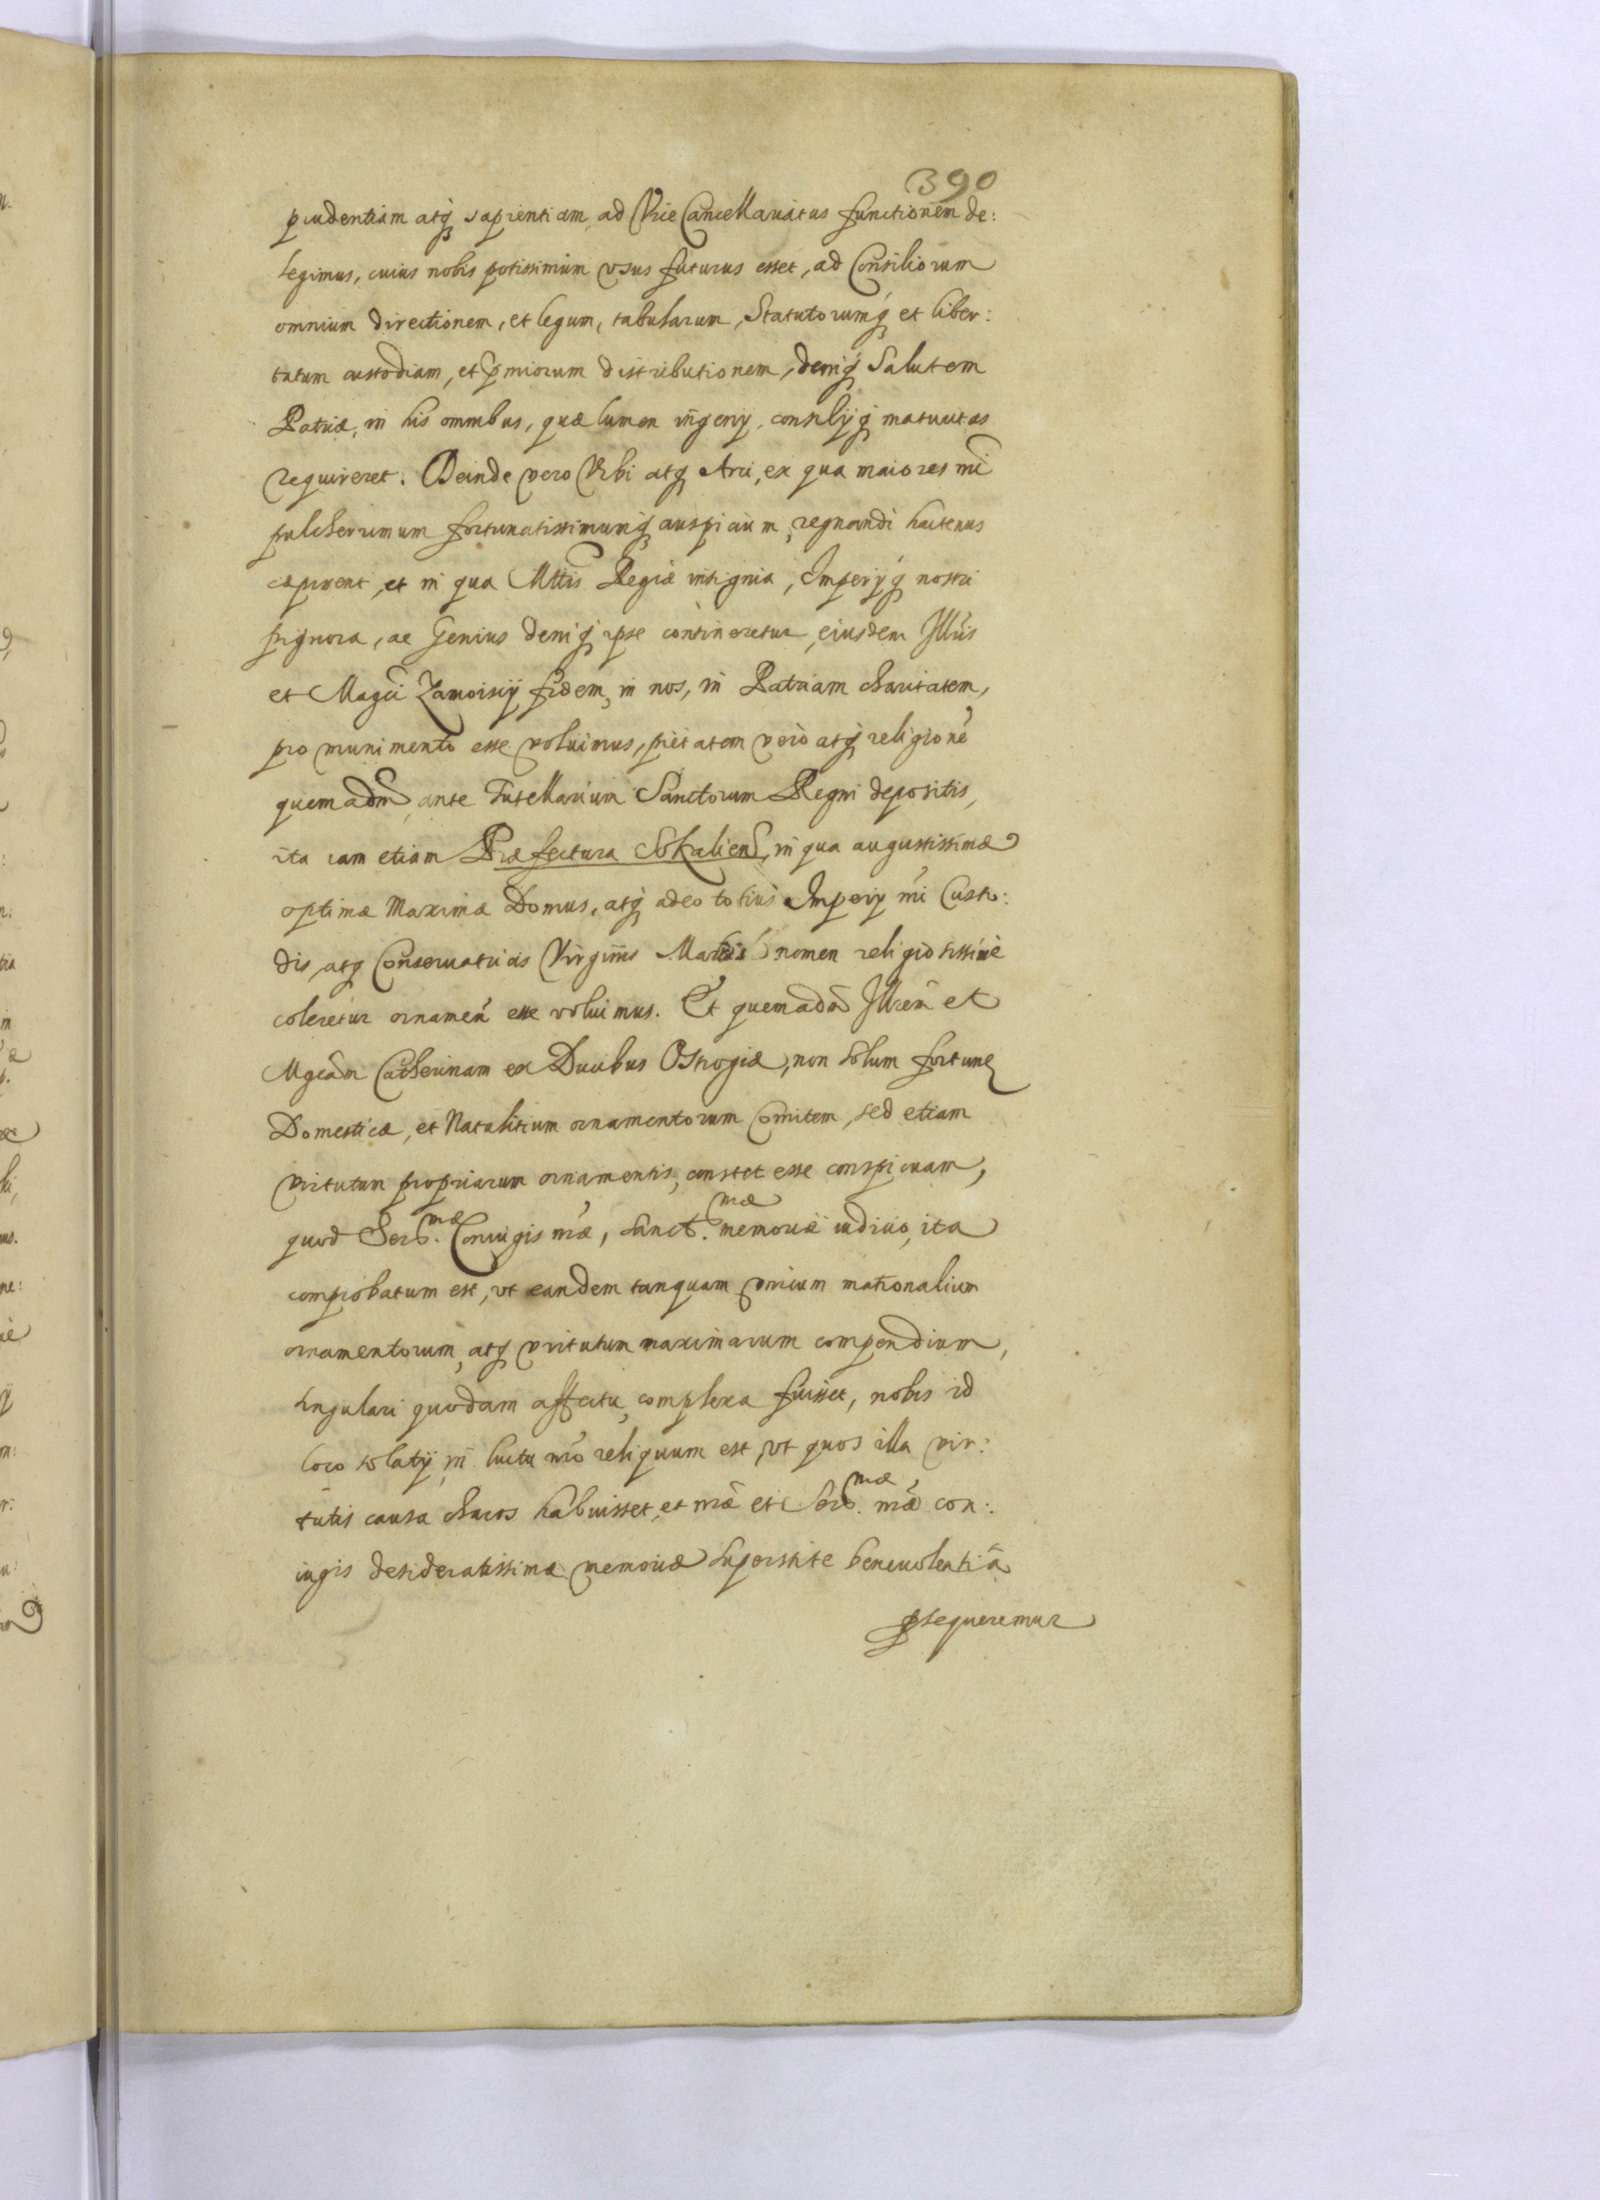 390
prudentiam atq sapientiam, ad Vice Cancellariatus functionem de:
legimus, cuius nobis potissimùm vsus futurus esset, ad Consiliorum
omnium directionem, et legum, tabularum, Statutorumq et liber:
tatum custodiam, et pmiorum distributionem, deniq Salutem
Patriæ, in his omnibus, quæ lumen ingenij, consilijq maturitas
requireret. Deinde vero Vrbi atq Arci, ex qua maiores nri
pulcherrimum fortunatissimumq auspicium, regnandi hactenus
cæpirent, et in qua Mttis Regiæ insignia, Imperijq nostri
pignora, ac Genius deniq ipse contineretur, eiusdem Illris
et Magci Zamoiscij fidem, in nos, in Patriam charitatem,
pro munimento esse voluimus, pietatem verò atq religionē
quemadm ante Tutellarium Sanctorum Regni depositis,
ita iam etiam Præfectura Sokaliens, in qua augustissimæ
optimæ Maximæ Domus, atq adeo totius Imperij nri Custo:
dis, atq Conseruatricis Virginis Mariæ nomen religiosissimè
coleretur ornamen esse voluimus. Et quemadm Illrem et
Mgcam Catherinam ex Ducibus Ostrogiæ, non solum fortunę
Domesticæ, et Natalitium ornamentorum Comitem, sed etiam
virtutum propriarum ornamentis, constet esse conspicuam,
quod Sers.mæ Coniugis nræ, sanct.mæ memoriæ iudicio, ita
comprobatum est, vt eandem tanquam vnicum mationalium
ornamentorum, atq virtutum maximarum compendium,
singulari quodam affectu, complexa fuisset, nobis id
loco solatij, in luctu nro reliquum est, vt quos illa vir:
tutis causa charos habuisset, et nræ et Sers.mæ nræ con:
iugis desideratissimæ memoriæ superstite beneuolentiâ
psequeremur